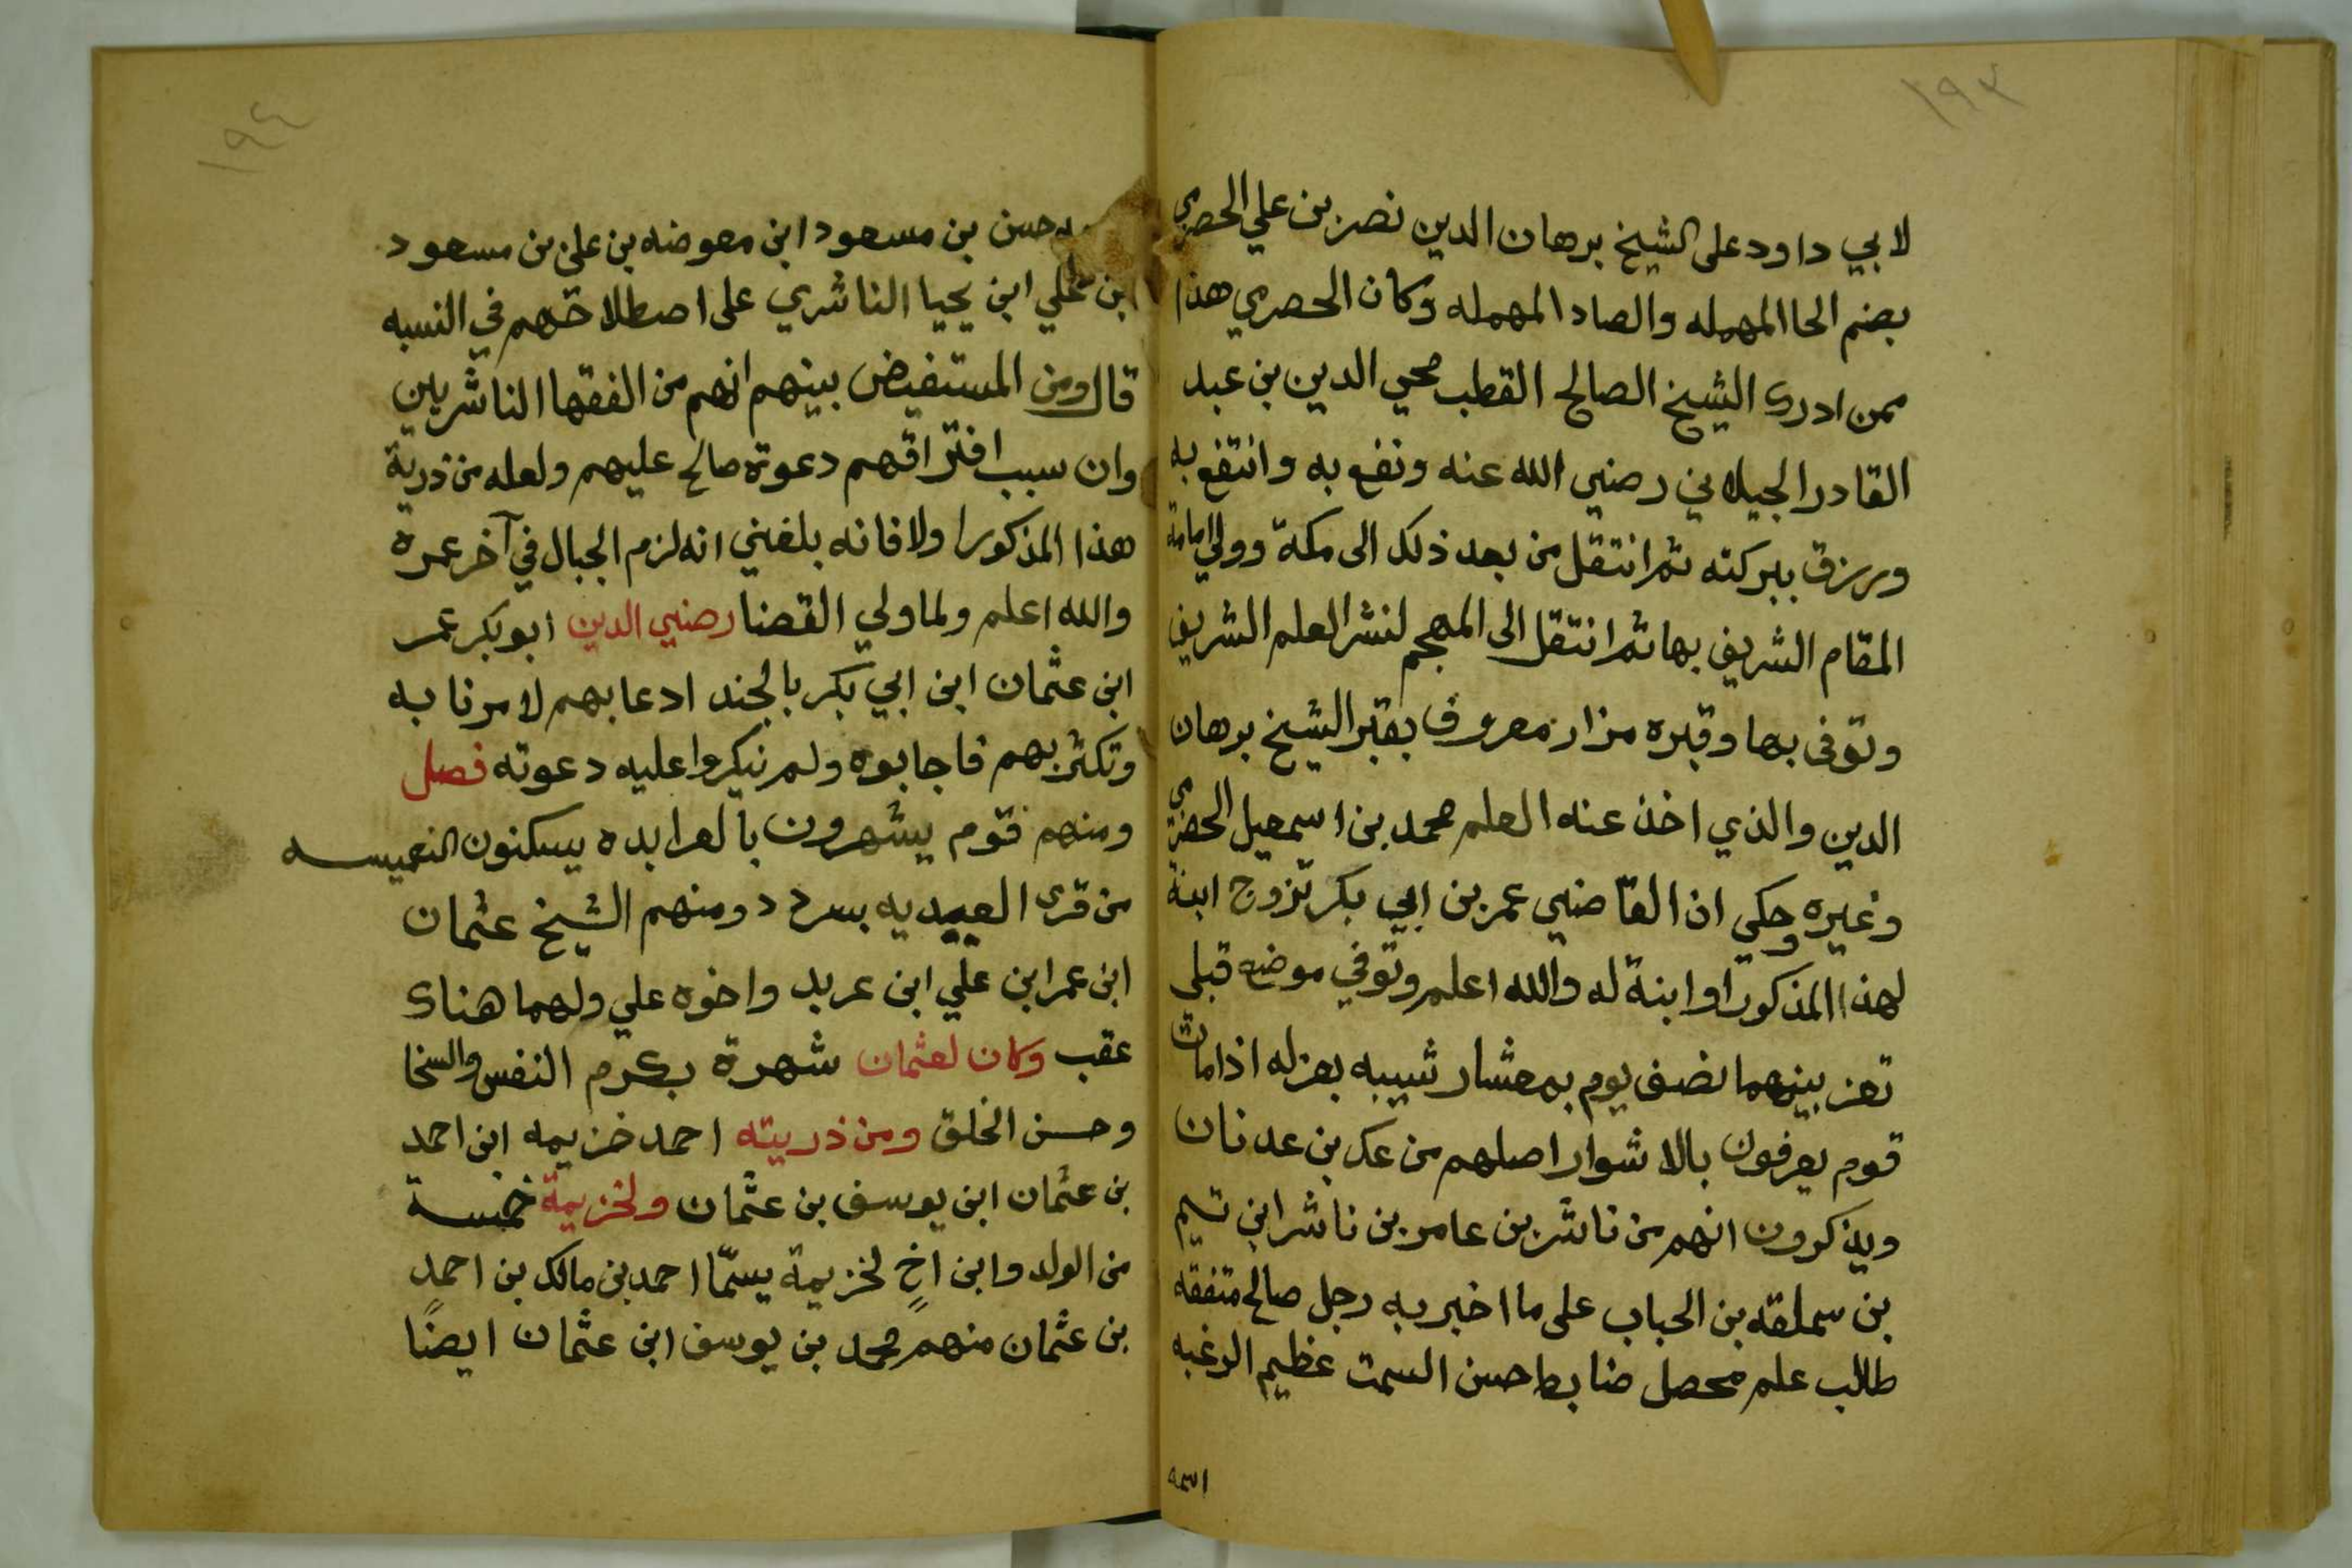 ١٩٣
لابي داود على الشيخ برهان الدين نصر بن علي الحصري
بضم الحا المهمله والصاد المهمله وكان الحصري هذا
ممن ادرك الشيخ الصالح القطب محيي الدين بن عبد
القادر الجيلاني رضي الله عنه ونفع به وانتفع به
ورزق ببركته ثم انتقل من بعد ذلك الى مكة وولي امامة
المقام الشريف بها ثم انتقل الى المهجم لنشر العلم الشريف
وتوفى بها وقبره مزار معروف بقبر الشيخ برهان
الدين والذي اخذ عنه العلم محمد بن اسمعيل الحضرمي
وغيره وحكي ان القاضي عمر بن ابي بكر تزوج ابنة
لهذا المذكور او ابنة له والله اعلم وتوفي موضه قبلي
تعز بينهما نصف يوم بمعشار شيبه بعزله اذامات
قوم يعرفون بالاشوار اصلهم من عك بن عدنان
ويذكرون انهم من ناشر بن عامر بن ناشر ابن تيم
بن سملقه بن الحباب على ما اخبر به رجل صالح متفقه
طالب علم محصل ضابط حسن السمت عظيم الرغبه
اسمه
١٩٤
حسن بن مسعود ابن معوضه بن علي بن مسعود
ابن علي ابن يحيا الناشري على اصطلاحهم في النسبه
قال ومن المستفيض بينهم انهم من الفقها الناشريين
وان سبب افتراقهم دعوة صالح عليهم ولعله من ذرية
هذا المذكور اولا فانه بلغني انه لزم الجبال في آخر عمره
والله اعلم ولما ولي القضا رضي الدين ابو بكر عمر
ابن عثمان ابن ابي بكر بالجند ادعا بهم لامرنا به
وتكثر بهم فاجابوه ولم نيكروا عليه دعوته فصل
ومنهم قوم يشهرون بالعرابده يسكنون النعميسه
من قرى العبيديه بسردد ومنهم الشيخ عثمان
ابن عمر ابن علي ابن عربد واخوه علي ولهما هناك
عقب وكان لعثمان شهرة بكرم النفس والسخا
وحسن الخلق ومن ذريته احمد خزيمه ابن احمد
بن عثمان ابن يوسف بن عثمان ولخزيمة خمسة
من الولد وابن اخٍ لخزيمة يسمّا احمد بن مالك بن احمدٍ
بن عثمان منهم محمد بن يوسف ابن عثمان ايضًا